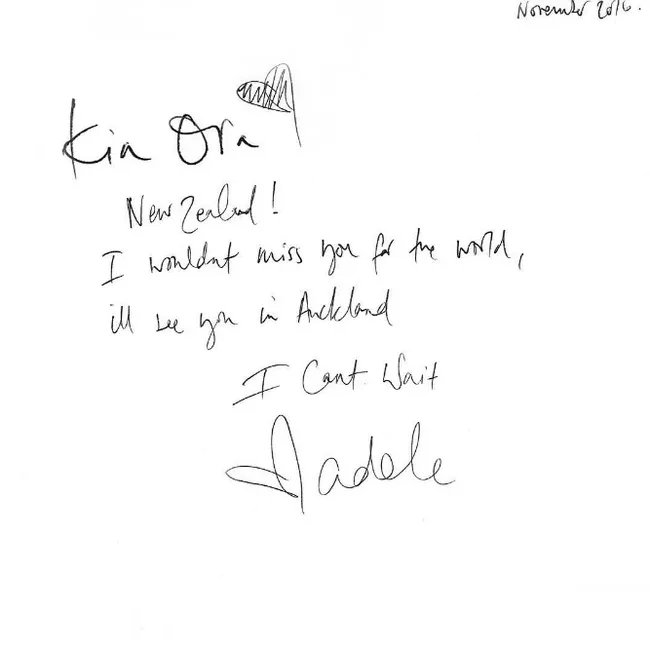 November 2016.
Kia Ora
New Zealand!
I wouldnt miss you for the world,
ill see you in Auckland
I Cant Wait
adele